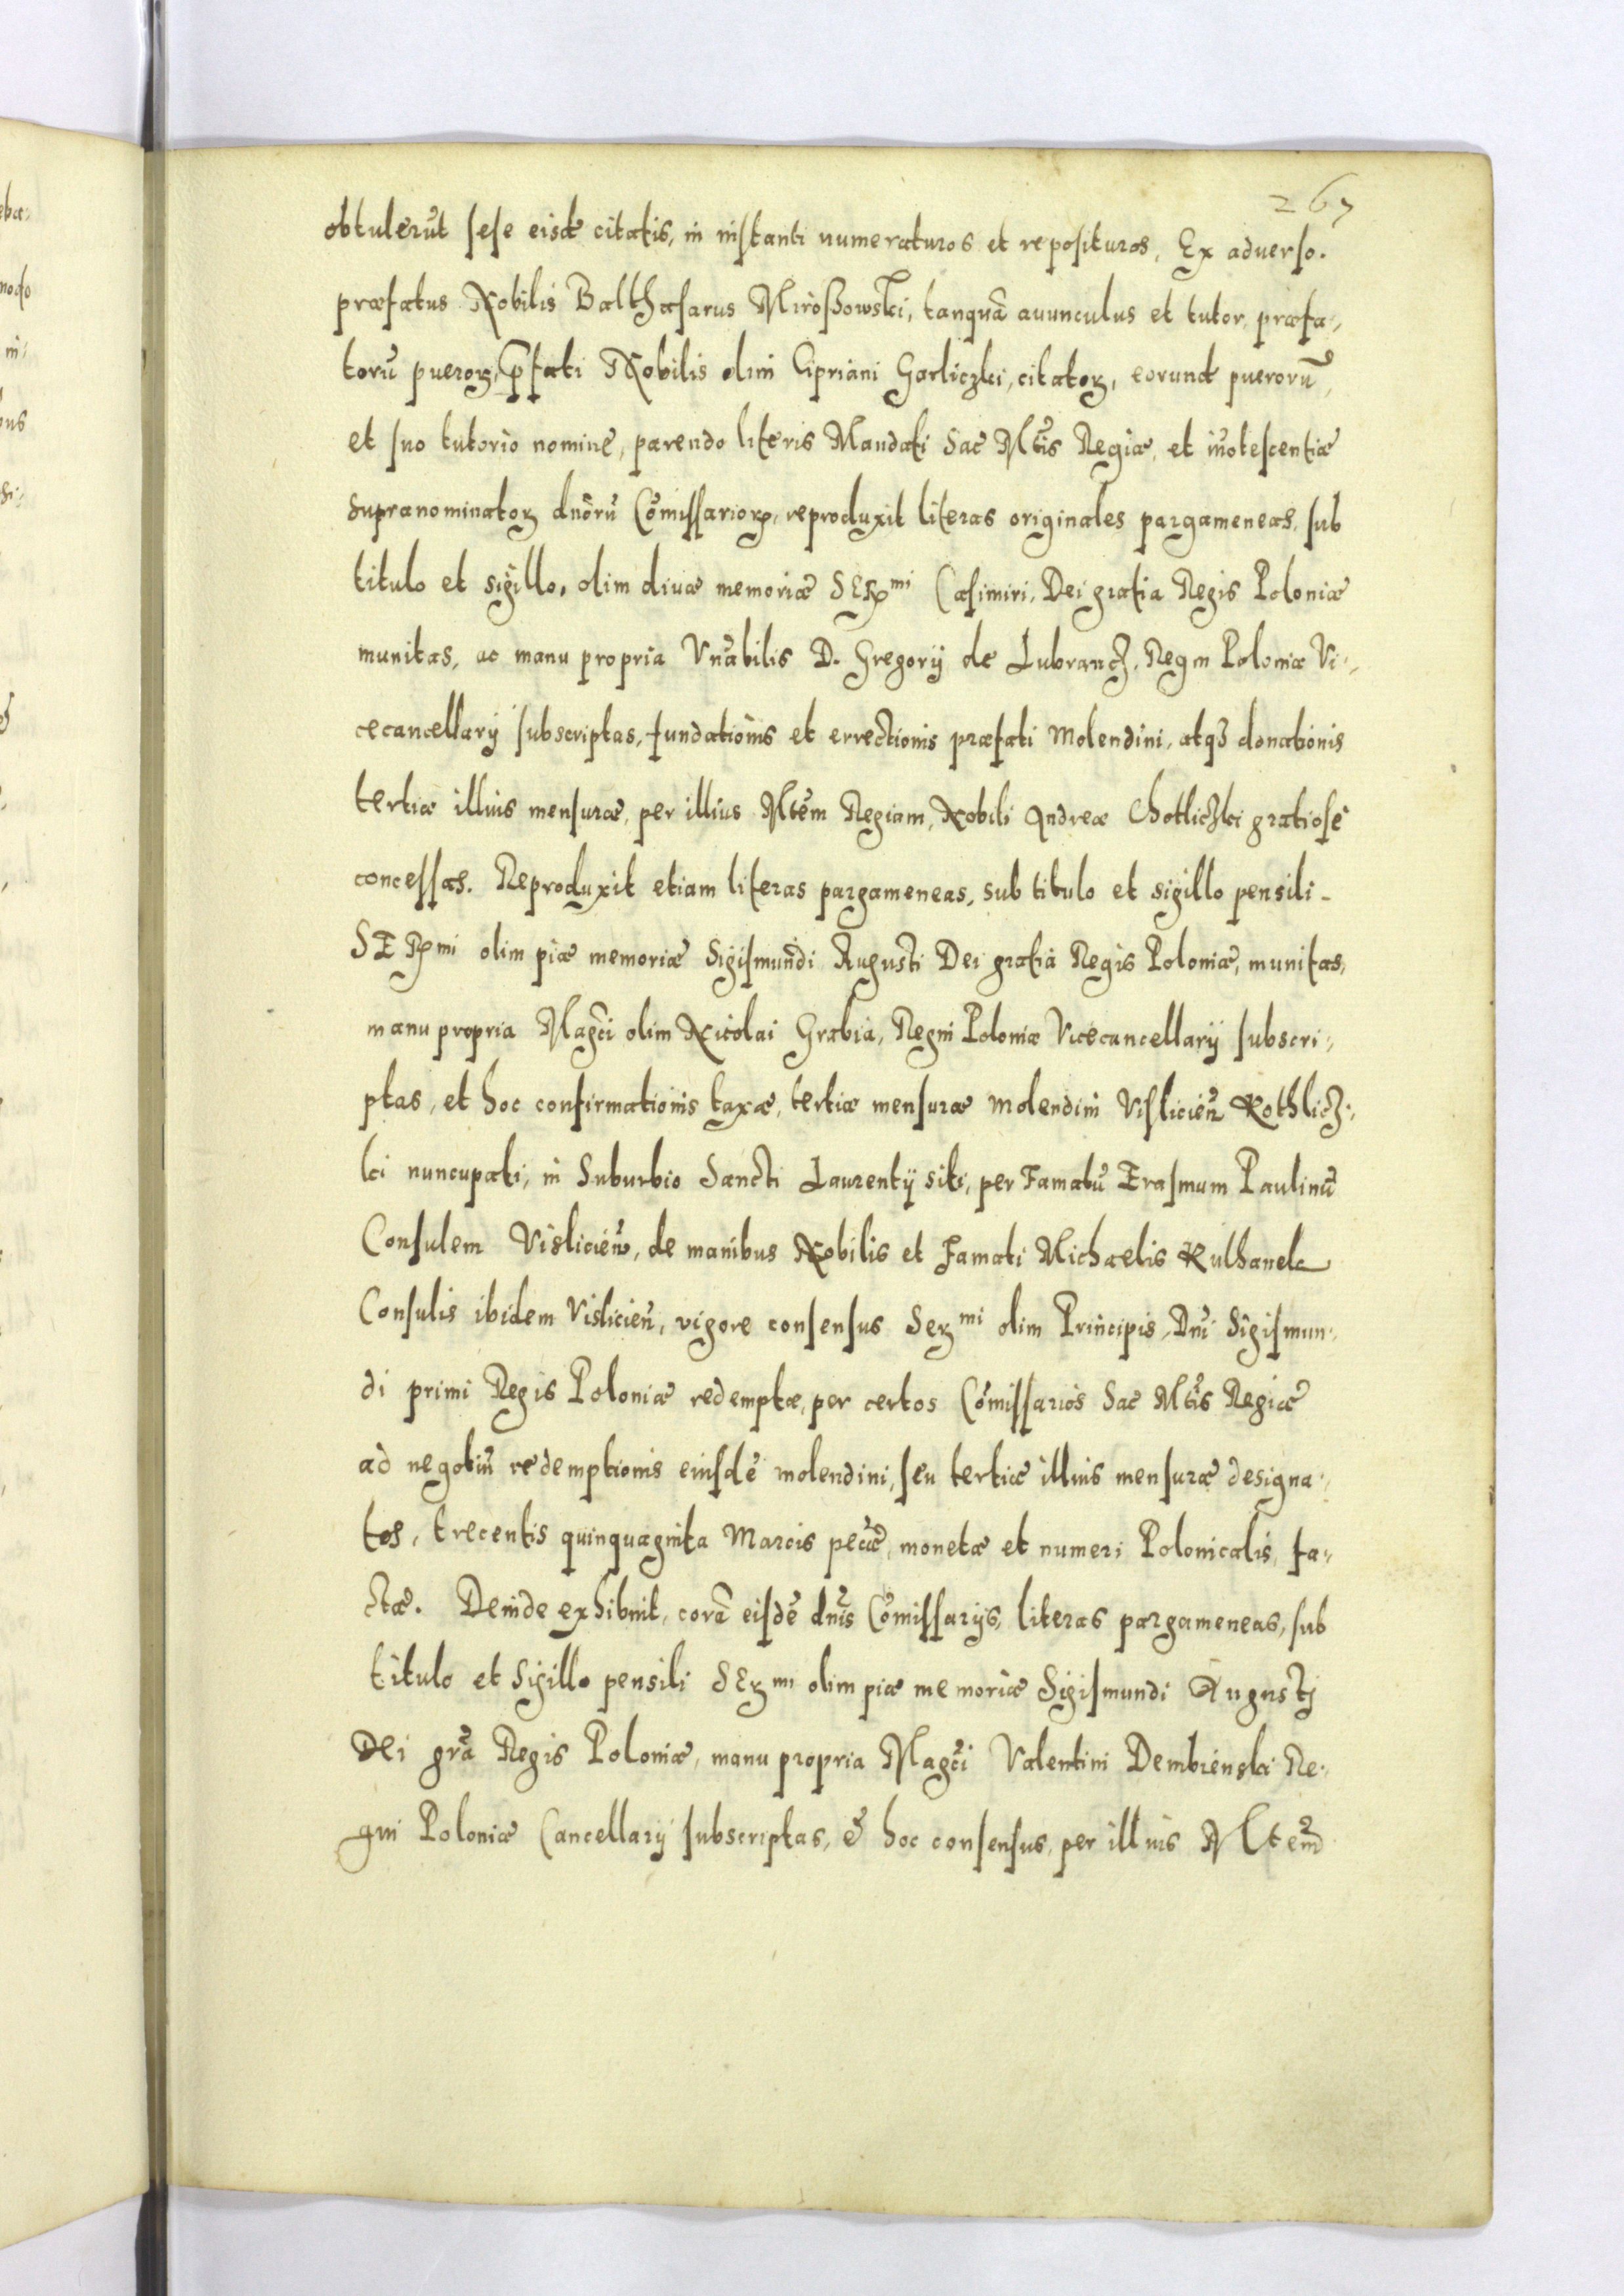 267
obtulerūt sese eisdē citatis, in instanti numeraturos et reposituros, Ex aduerso.
præfatus Nobilis Balthasarus Miroßowski, tanquā auunculus et tutor, præfa-,
torū pueroꝝ, p̄fati Nobilis olim Cipriani Garliczki, citatoꝝ, eorundē puerorū,
et suo tutorio nominē, parendo literis Mandati Sac̃ Mt̃is Regiæ, et iñotescentiæ
supranominatoꝝ dn̄orū Com̄issarioꝝ, reproduxit literas originales pargameneas, sub
titulo et sigillo, olim diuæ memoriæ SEꝝmi Casimiri, Dei gratia Regis Poloniæ
munitas, ac manu propria Vn̄abilis D. Gregorÿ de Lubrancz, Regni Poloniæ Vi-,
cecancellarÿ subscriptas, fundationis et errectionis præfati molendini, atqꝫ donationis
tertiæ illius mensuræ, per illius Mt̃em Regiam, Nobili Andreæ Chotliczki gratiosè
concessas. Reproduxit etiam literas pargameneas, sub titulo et sigillo pensili -
SEꝝmi olim piæ memoriæ Sigismundi Augusti Dei gratia Regis Poloniæ, munitas,
manu propria Magc̄i olim Nicolai Grabia, Regni Poloniæ Vicecancellarÿ subscri-,
ptas, et hoc confirmationis taxæ, tertiæ mensuræ molendini Vislicien̄ Kothlicz-,
ki nuncupati, in Suburbio Sancti Laurentÿ siti, per Famatū Erasmum Paulinū
Consulem Vislicien̄, de manibus Nobilis et Famati Michaelis Kulhanek
Consulis ibidem Vislicien̄, vigore consensus Seꝝmi olim Principis, Dn̄i Sigismun-,
di primi Regis Poloniæ redemptæ, per certos Com̄issarios Sac̃ Mt̃is Regiæ
ad negotiū redemptionis eiusdē molendini, seu tertiæ illius mensuræ designa-,
tos, trecentis quinquaginta Marcis pec̃æ, monetæ et numeri Polonicalis, fa-,
ctæ. Deinde exhibuit, corā eisdē dn̄is Com̄issarÿs, literas pargameneas, sub
titulo et Sigillo pensili SEꝝmi olim piæ memoriæ Sigismundi Augustj
Dei gr̄a Regis Poloniæ, manu propria Magc̄i Valentini Dembienski Re-,
gni Poloniæ Cancellarÿ subscriptas, & hoc consensus, per illius Mt̃em